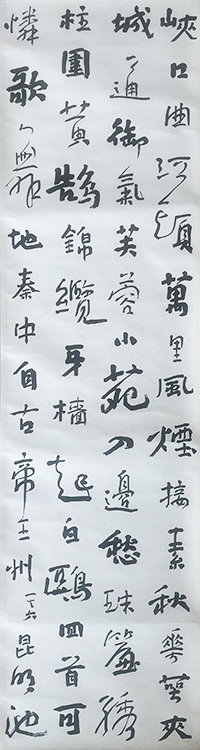 峽口曲江頭萬里風煙接素秋華萼夾
城通御氣芙蓉小苑入邊愁珠簾繡
柱圍黃鵠錦纜牙檣起白鷗回首可
憐歌舞地秦中自古帝王州昆明池